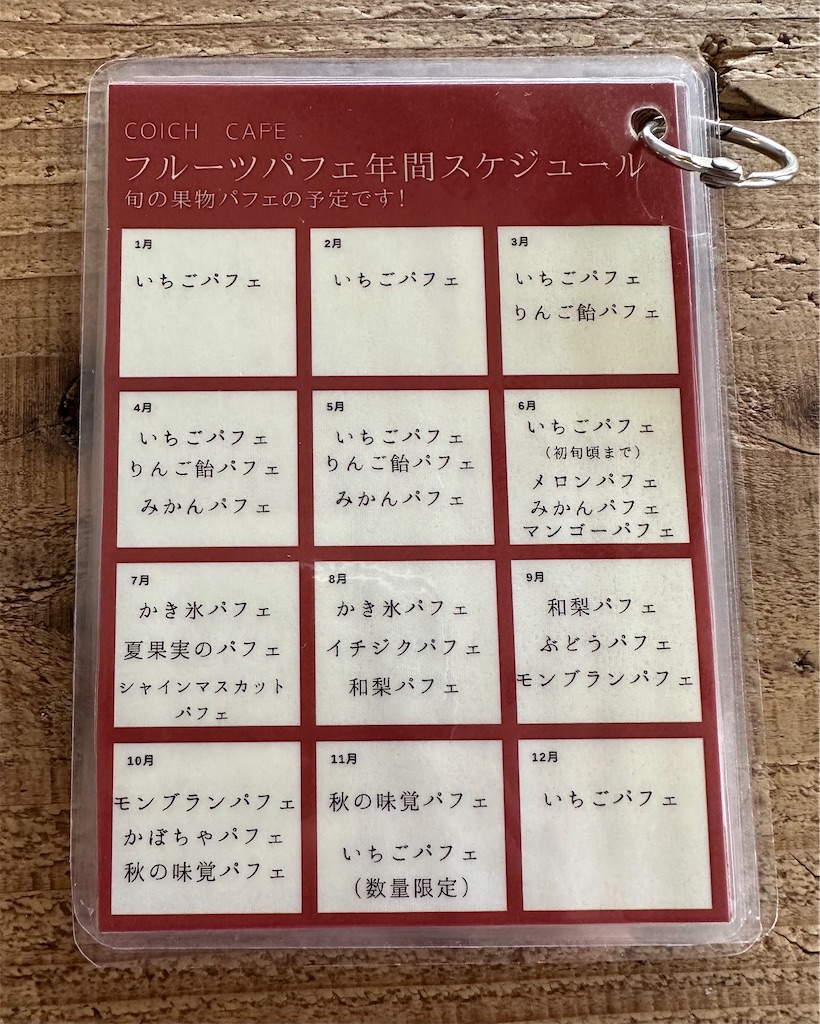 COICH CAFE
フルーツパフェ年間スケジュール
旬の果物パフェの予定です!
1月
いちごパフェ
2月
いちごパフェ
3月
いちごパフェ
りんご飴パフェ
4月
いちごパフェ
りんご飴パフェ
みかんパフェ
5月
いちごパフェ
りんご飴パフェ
みかんパフェ
6月
いちごパフェ
(初旬頃まで)
メロンパフェ
みかんパフェ
マンゴーパフェ
7月
かき氷パフェ
夏果実のパフェ
シャインマスカット
パフェ
8月
かき氷パフェ
イチジクパフェ
和梨パフェ
9月
和梨パフェ
ぶどうパフェ
モンブランパフェ
10月
モンブランパフェ
かぼちゃパフェ
秋の味覚パフェ
11月
秋の味覚パフェ
いちごパフェ
(数量限定)
12月
いちごパフェ